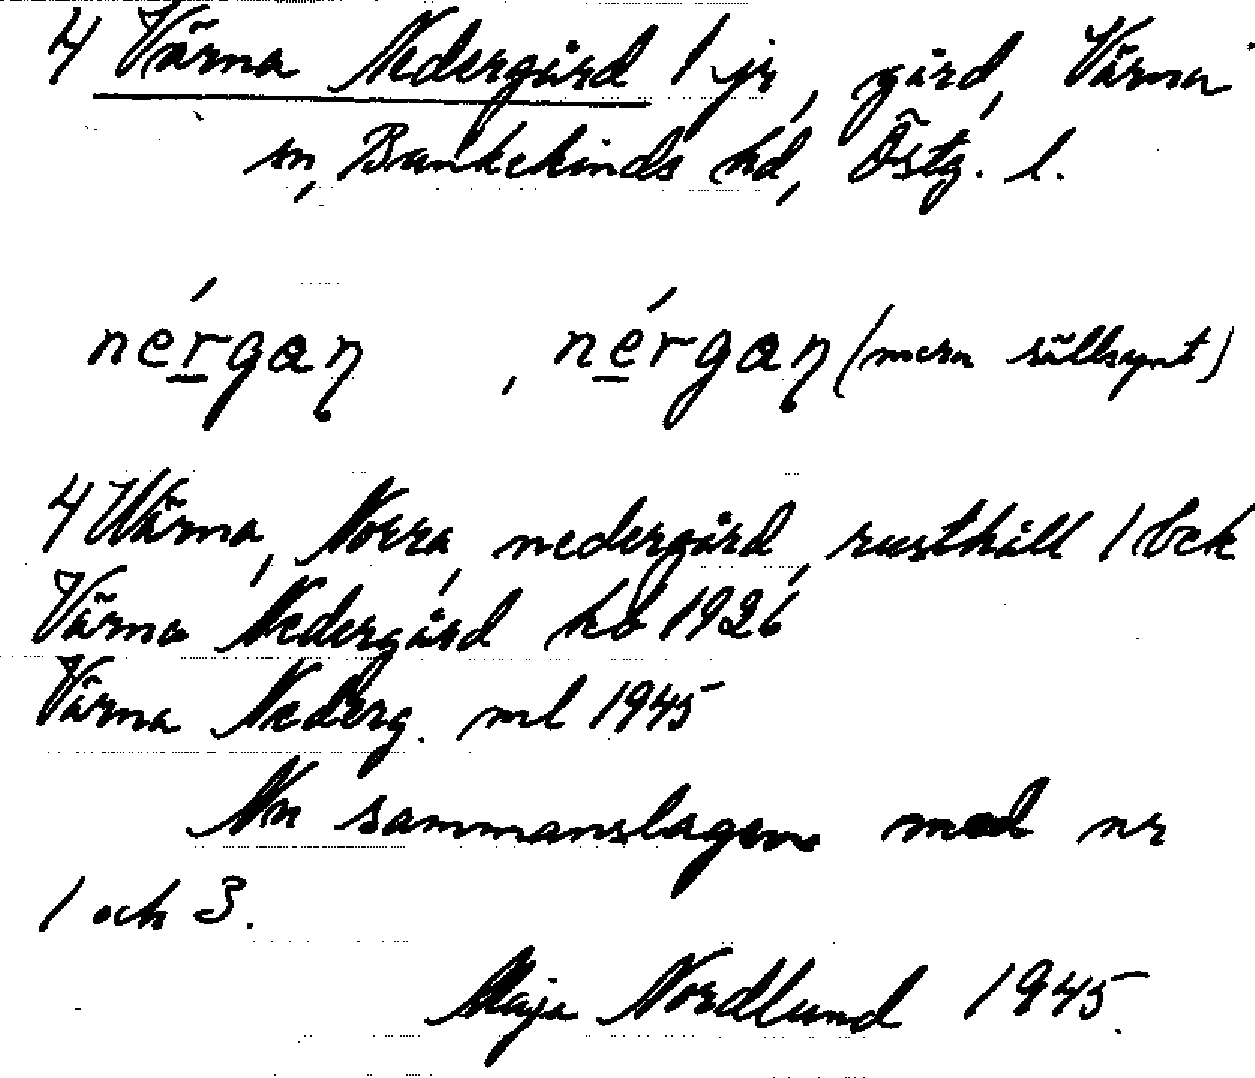 4 Värna Nedergård 1 jr, gård, Värna
sn, Bankekinds hd, Östg. l.
nérgaņ, nérgaņ (mera sällsynt)
4 Wärna, Norra, nedergård, rusthåll 1 Jbek
Värna Nedergård hå 1926
Värna Nederg. ml 1945
Nu sammanslagen med nr
1 och 3.
Maja Nordlund 1945